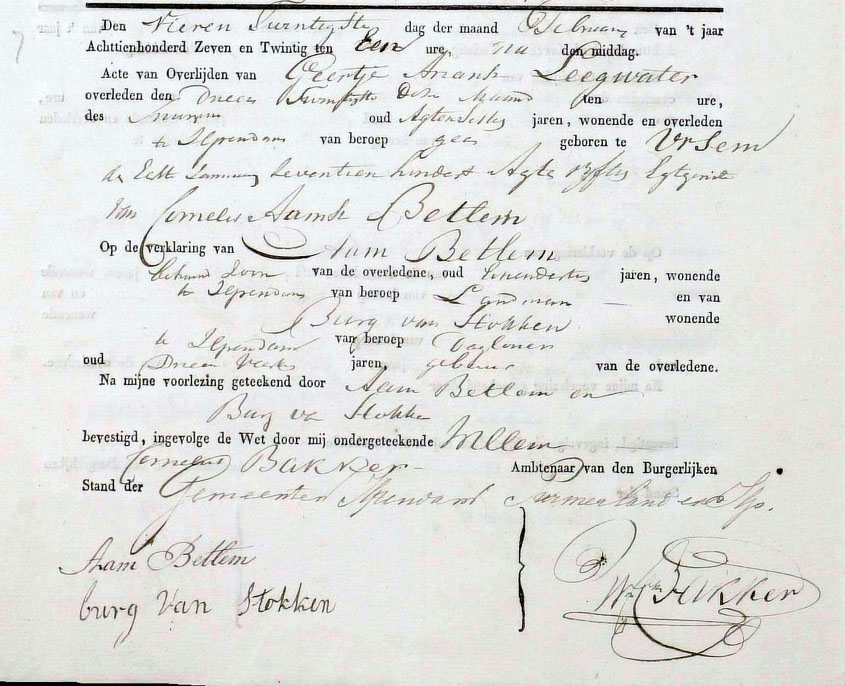 Den Vieren Twintigste dag der maand February van 't jaar
Achttienhonderd Zeven en Twintig ten Een ure, na den middag.
Acte van Overlijden van Geertje Leegwater
overleden den Drieen Twintigste Deser Maand ten ure,
des oud jaren, wonende en overleden
te Ilpendam van beroep geen geboren te Ursem
de January Seventien hondert Agt
van Cornelis Aamsz Betlem
Op de verklaring van Aam Betlem
Zoon van de overledene, oud jaren, wonende
te Ilpendam van beroep Landman en van
Burg van Stokken wonende
te Ilpendam van beroep Daglooner
oud jaren, gebuur van de overledene.
Na mijne voorlezing geteekend door Aam Betlem en
Burg van Stokke
bevestigd, ingevolge de Wet door mij ondergeteekende Willem
Cornelis Bakker Ambtenaar van den Burgerlijken
Stand der Gemeenten Ilpendam Purmerland en Ilp.
Aam Betlem
burg Van Stokken
Bakker